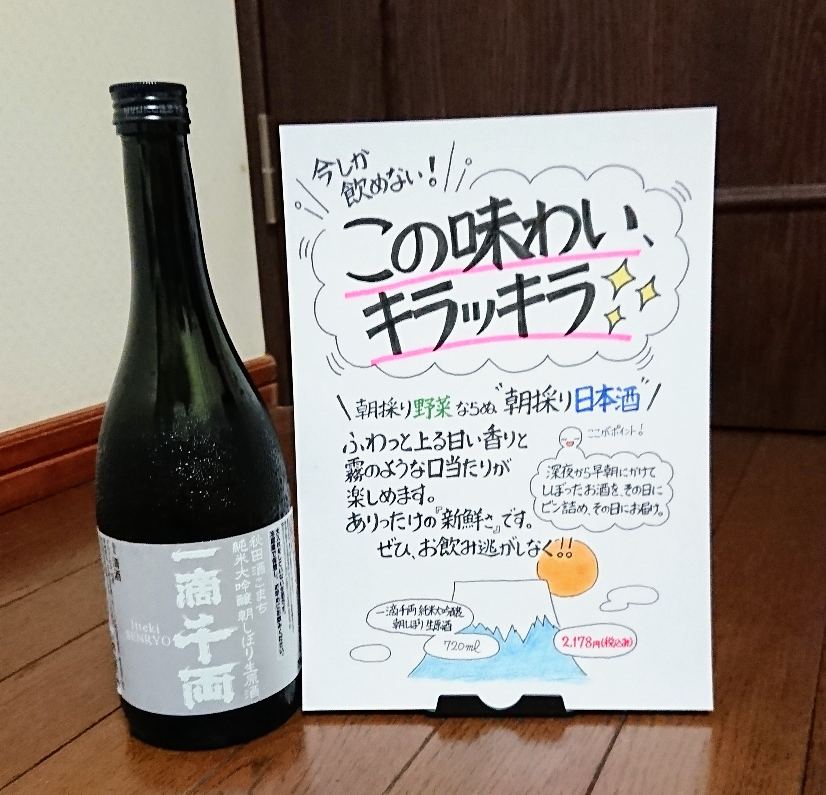 今しか
飲めない!
この味わい、
キラッキラ
朝採り野菜ならぬ"朝採り日本酒"
ふわっと上る甘い香りと
霧のような口当たりが
楽しめます。
ありったけの『新鮮さ』です。
ぜひ、お飲み逃がしなく!!
ここがポイント!
深夜から早朝にかけて
しぼったお酒を、その日に
ビン詰め、その日にお届け。
一滴千両 純米大吟醸
朝しぼり生原酒
720ml
2,178円(税込み)
秋田酒こまち
純米大吟醸 朝しぼり生原酒
一滴千両
Itteki
SENRYO
清酒